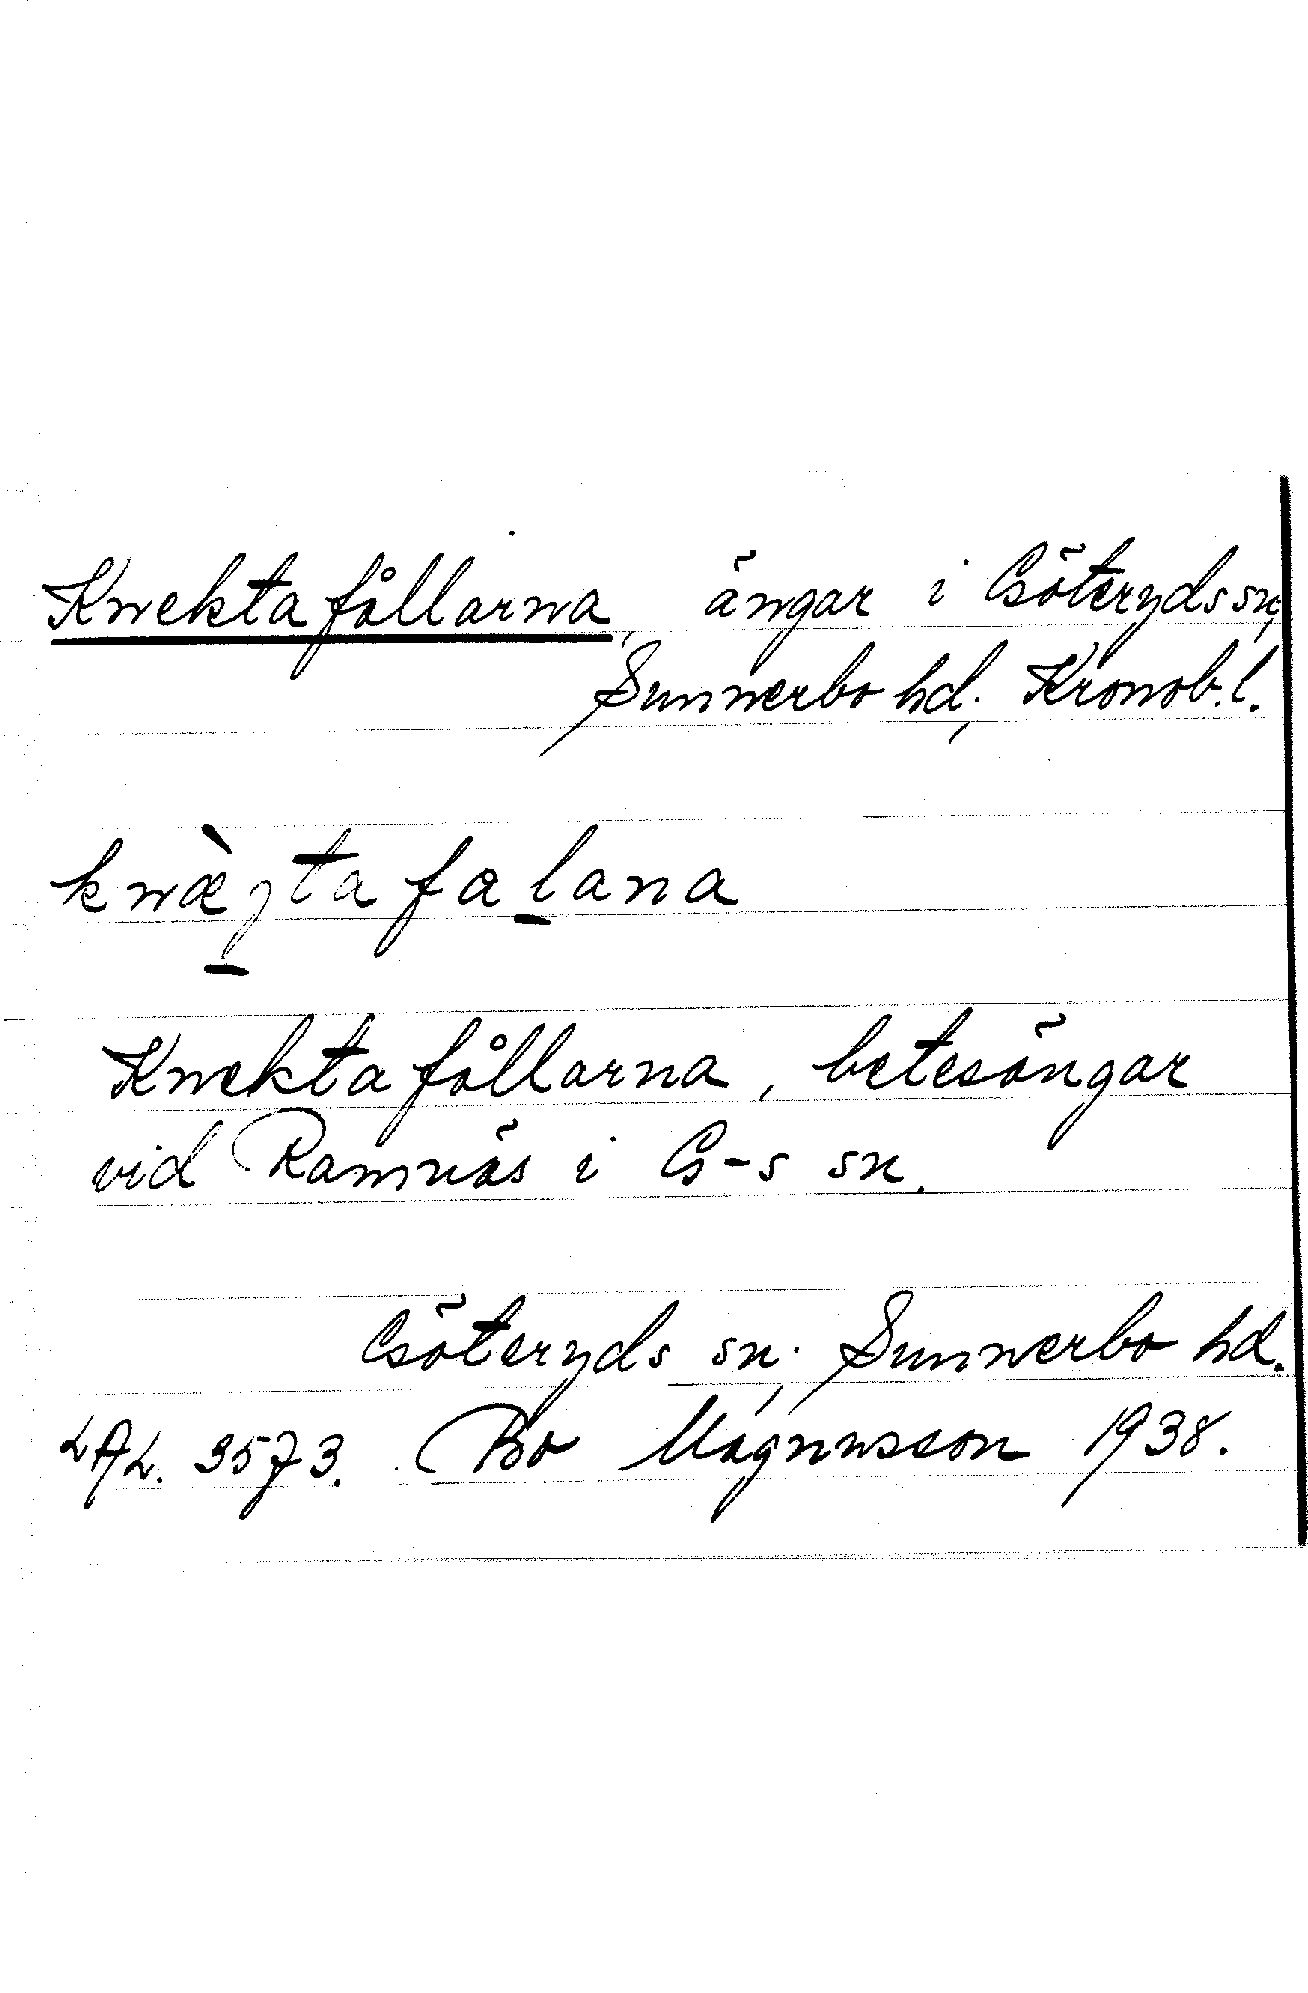 Knektafållarna, ängar i Göteryds sn,
Sunnerbo hd, Kronob. l.
Knektafållarna, betesängar
vid Ramnäs i G-s sn.
Göteryds sn, Sunnerbo hd.
LAL. 3573. Bo Magnusson 1938.